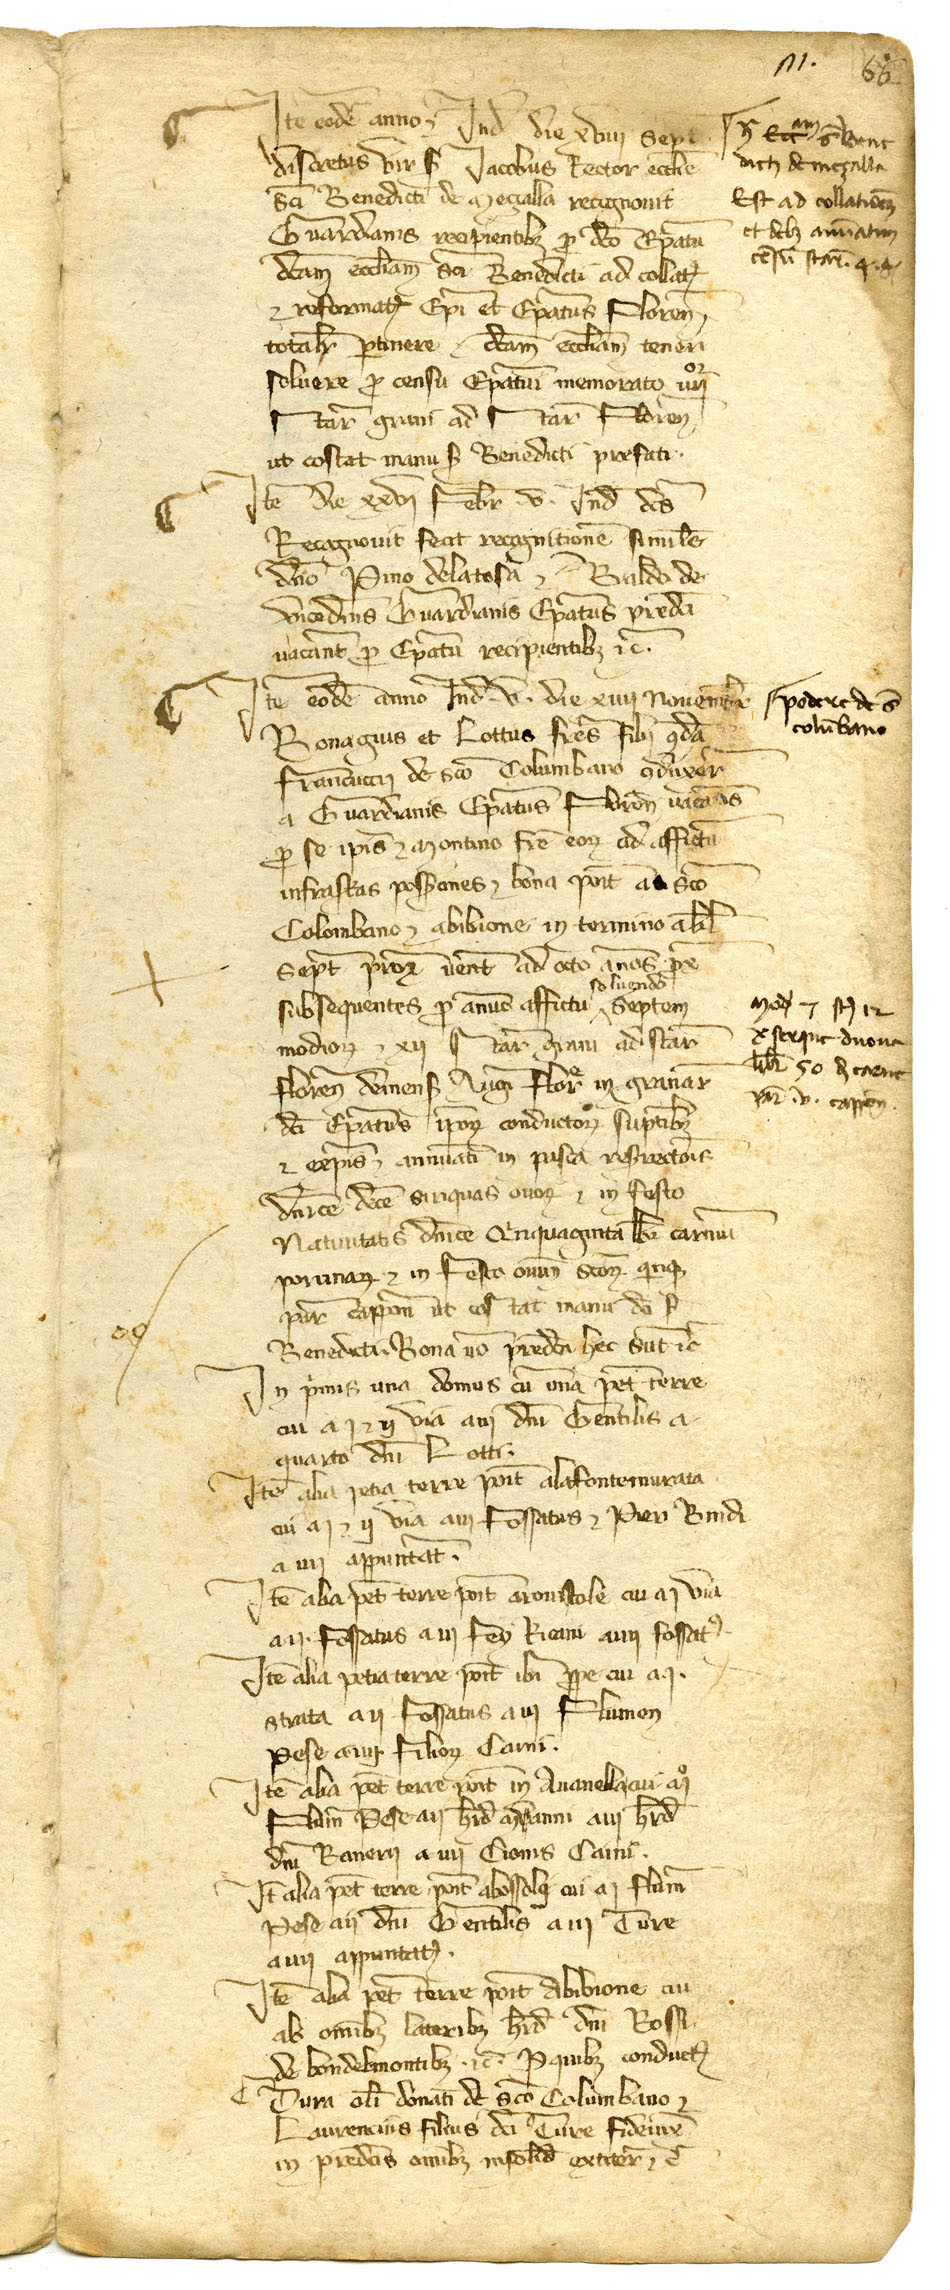 m. 66
Ite eode anno Ind die xviii Sept
discretus vir S Jacobus Rector ecclie
Sci Benedicti de Megalla recognovit
Guardianis recipientibz p dco Epatu
dcam eccliam sci Benedicti ad collat
z reformat Epi et Epatus Floren
totalr ptinere dcam eccliam teneri
solvere p censu Epatui memorato iiiior
Star grani ad Star Floren
ut costat manu S Benedicti prefati.
h Eccam S Bene
dicti de megalla
Est ad collatioem
et debz annuatim
cesu star. 4. g
Ite die xxvi Febr v. Ind dcs
Recognovit fecit recognitione simile
dno Pino delatosa z Baldo de
vicedmis Guardianis Epatus predci
vacant p Epatu recipientibz zc.
Ite eode anno Ind. v. die xiiii Novembr
Bonagius et Lottus fres filii qda
Francucci de sco Columbano qduxer
a Guardianis Epatus Floren vacatis
p se ipis z Montino fre eoz ad affictu
infrastas possiones z bona poit a sco
Colombano z abibione in termino a kl
Sept prox vent ad octo anos px
subsequentes p anuo affictu solvendo Septem
modioz z xii Star grani ad star
floren demens Aug Flore in granar
dci Epatus ipoz conductoz suptibz
z expis, annuati in pasca resrectois
dnice dece sinquas ovoz z in festo
Nativitatis dnice Quinquaginta libr carnium
porcinaz z in Festo oium Scoz quinqz
par cappon ut costat manu dci S
Benedicti. Bona vo predca hec sut zc
podere de S
columbano
mod 7 st 12
x serque d uova
libr 50 di carne
par .v. cappon.
In pimis una domus cu una pet terre
cui a i z ii via a iii dni Gentilis a
quarto dni Lotti.
Ite alia petia terre poit ala fontemurata
cui a i z ii via a iii Fossatus z Pieri Bindi
a iiii appuntat.
Ite alia pet terre poit aronistole cui a i via
a ii. Fossatus a iii Fey Ricani a iiii fossat
Ite alia petia terre poit ibi ppe cui a i.
strata a ii Fossatus a iii Flumen
Pese a iiii Filioz Carni.
Ite alia pet terre poit in Avanella cui a i
Flum Pese a ii hrd a iii hrd
dni Ranerii a iiii Cionis Caini.
It alia pet terre poit abossolo cui a i Flum
Pese a ii dni Gentilis a iii Ture
a iiii appuntat.
Ite alia pet terre poit Abibione cui
ab omibz lateribz hrd dni Rossi
de bondelmontibz. zc. P quibz conduct
Tura oli donati de sco Columbano z
Laurencius filius dci Ture fideiux
in predcis omibz insolid extiter z c